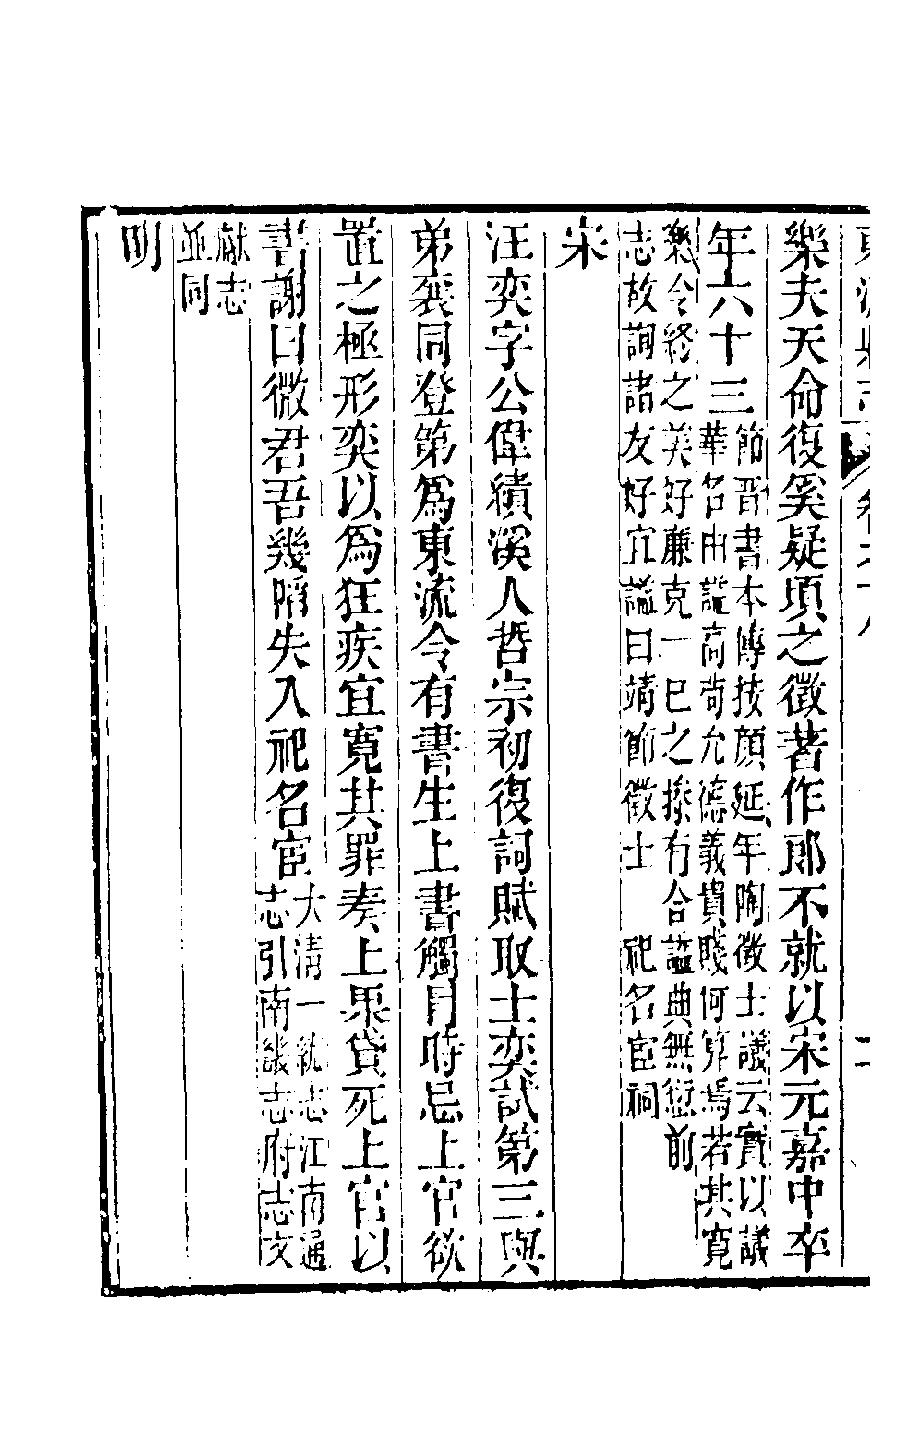 樂夫天命復奚疑頃之徵著作郎不就以宋元嘉中卒
年六十三節晋書本傳按顏延年陶徵士誄云實以誄
華名由諡高苟允德義貴賤何筭焉若其寬
樂令終之美好廉克一己之操有合諡典無愆前
志故詢諸友好宜諡曰靖節徵士　祀名宦祠
宋
汪奕字公偉績溪人哲宗初復詞賦取士奕試第三與
弟襄同登第爲東流令有書生上書觸冒時忌上官欲
置之極形奕以爲狂疾宜寬其罪奏上果貸死上官以
書謝曰微君吾幾陷失入祀名宦大清一統志江南通
志引南畿志府志文
獻志
並同
明